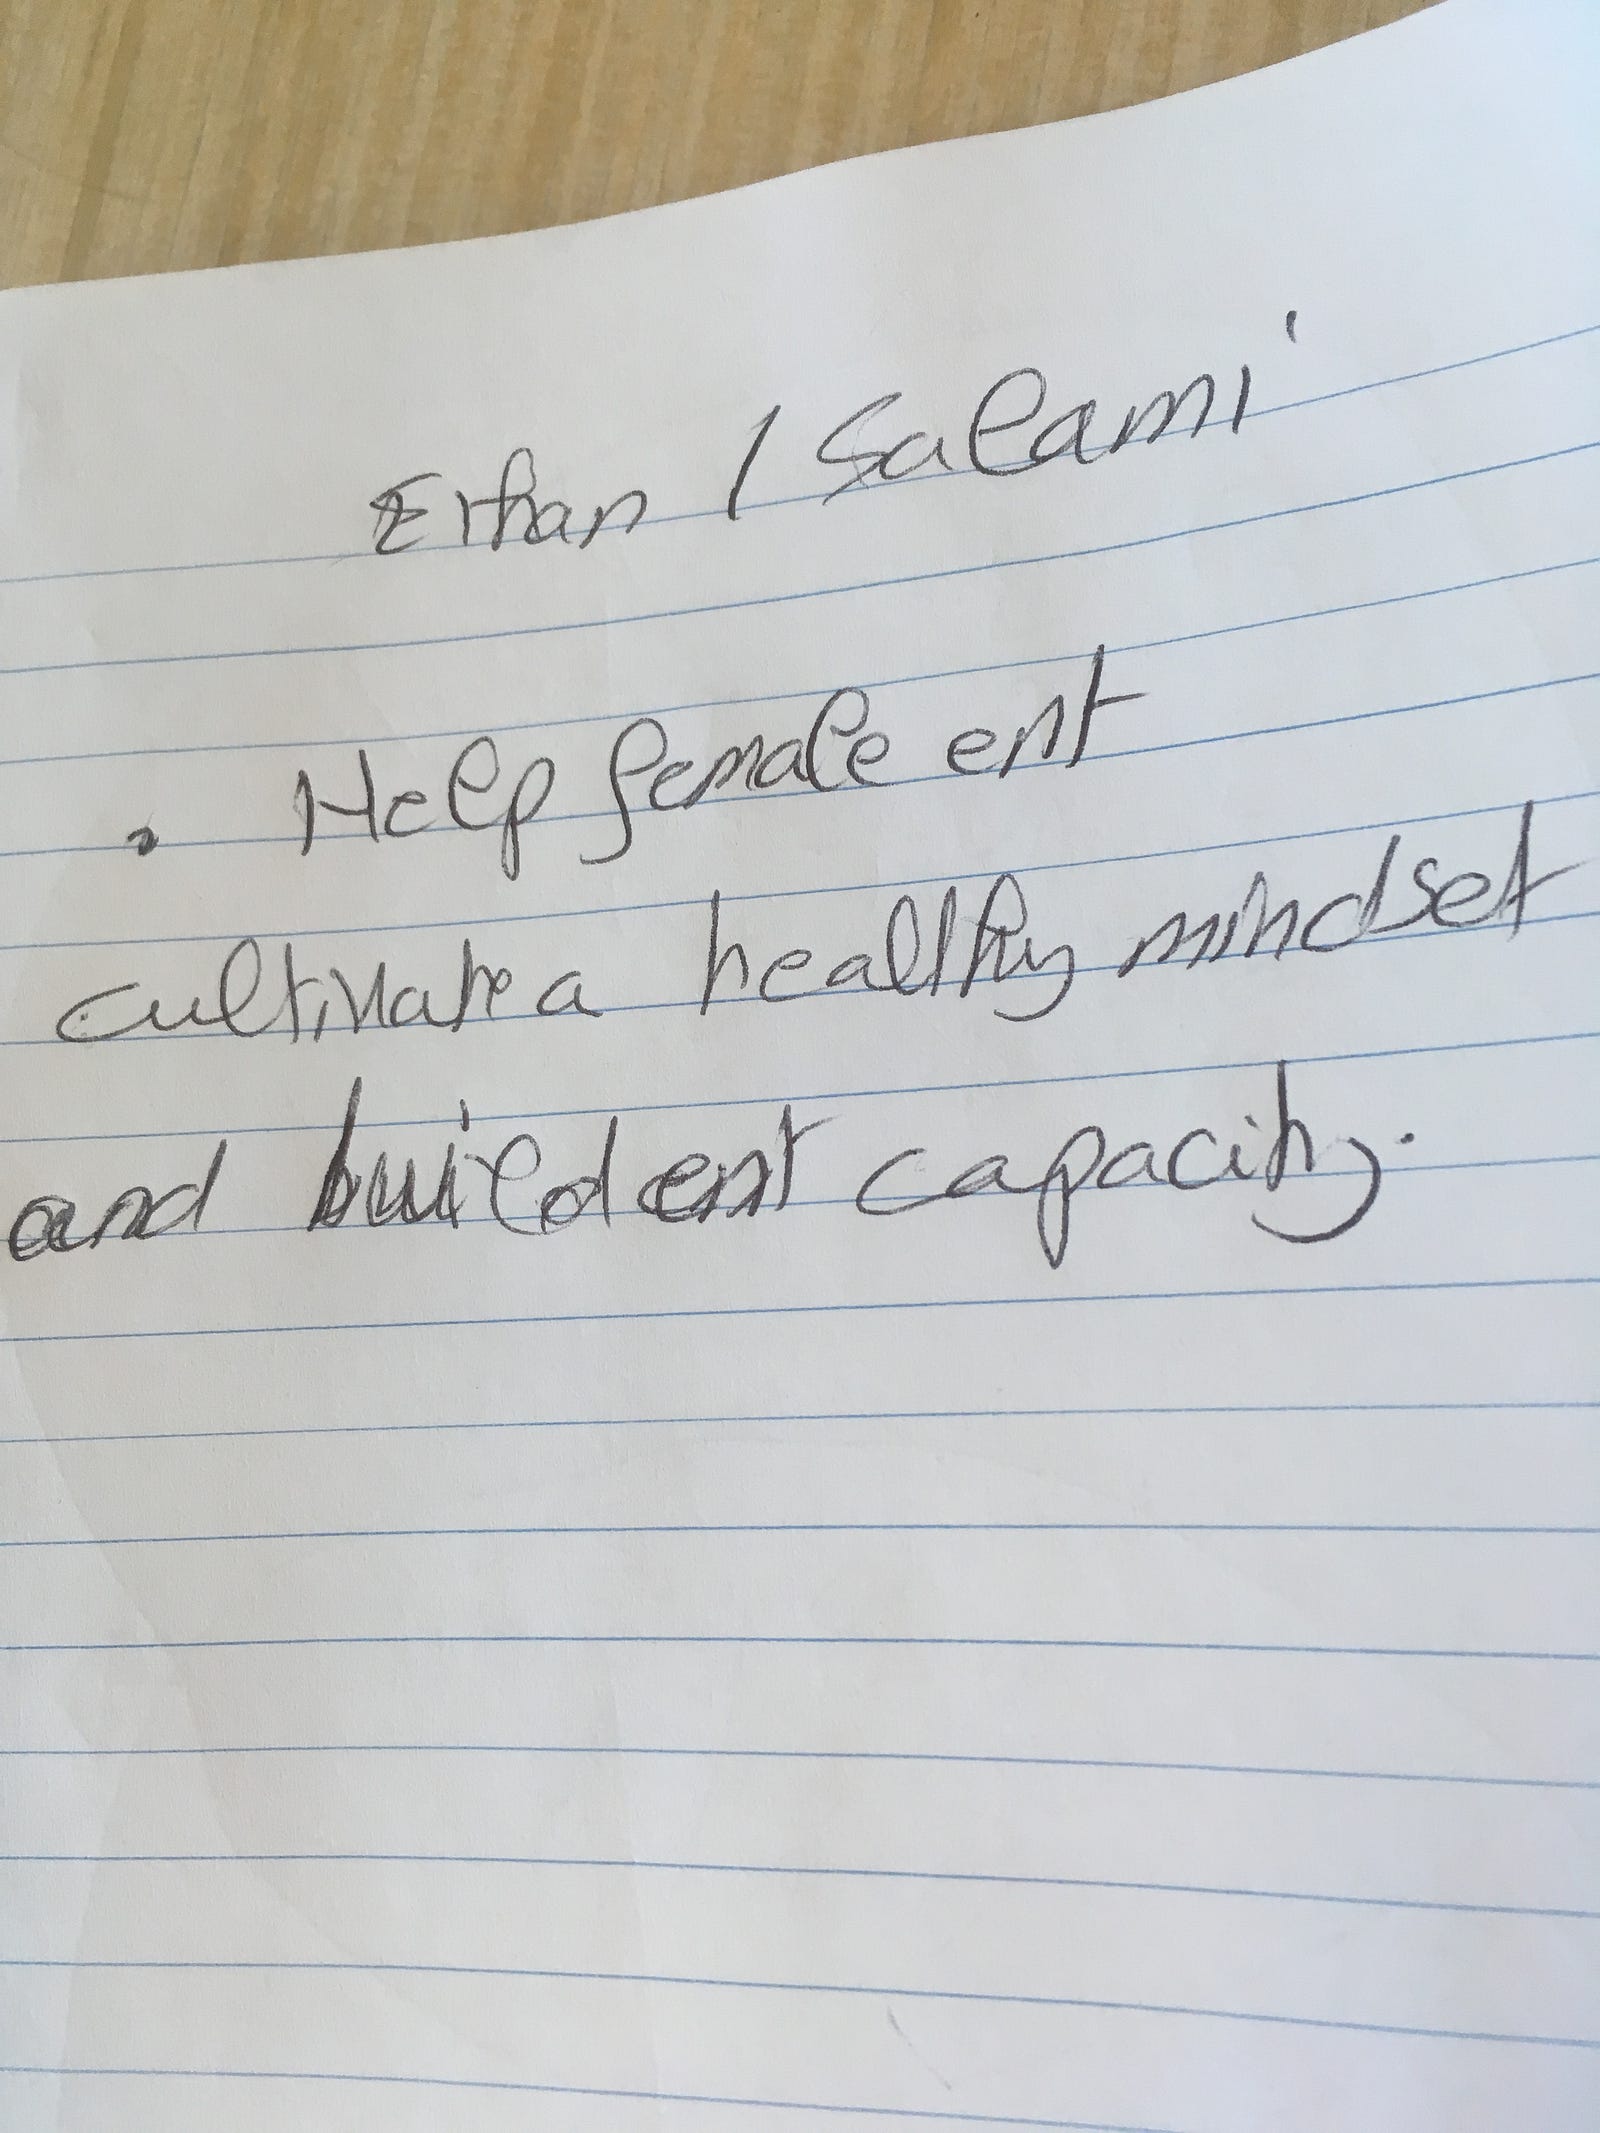 Erhan / Salami
• Help female ent
cultivate a healthy mindset
and build ent capacity.